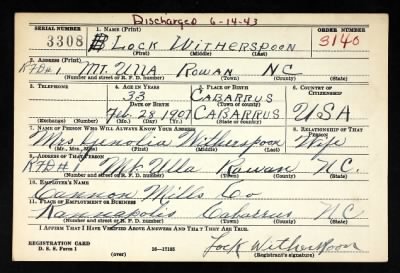 Discharged 6-14-43
SERIAL NUMBER
1. NAME (Print)
ORDER NUMBER
3308
LOCK WITHERSPOON
3140
(First) (Middle) (Last)
2. ADDRESS (Print)
RFD #1 MT. ULLA ROWAN NC
(Number and street or R. F. D. number) (Town) (County) (State)
3. TELEPHONE
4. AGE IN YEARS
5. PLACE OF BIRTH
6. COUNTRY OF CITIZENSHIP
33
CABARRUS
DATE OF BIRTH
(Town or county)
Feb 28 1907 CABARRUS USA
(Exchange) (Number) (Mo.) (Day) (Yr.) (State or country)
7. NAME OF PERSON WHO WILL ALWAYS KNOW YOUR ADDRESS
8. RELATIONSHIP OF THAT PERSON
Mrs Witherspoon Wife
(Mr., Mrs., Miss) (First) (Middle) (Last)
9. ADDRESS OF THAT PERSON
RFD #1 Mt Ulla Rowan N.C.
(Number and street or R. F. D. number) (Town) (County) (State)
10. EMPLOYER'S NAME
Cannon Mills Co
11. PLACE OF EMPLOYMENT OR BUSINESS
Kannapolis Cabarrus N.C.
(Number and street or R. F. D. number) (Town) (County) (State)
I AFFIRM THAT I HAVE VERIFIED ABOVE ANSWERS AND THAT THEY ARE TRUE.
REGISTRATION CARD
D. S. S. Form 1
16—17105
(over)
Lock Witherspoon
(Registrant's signature)